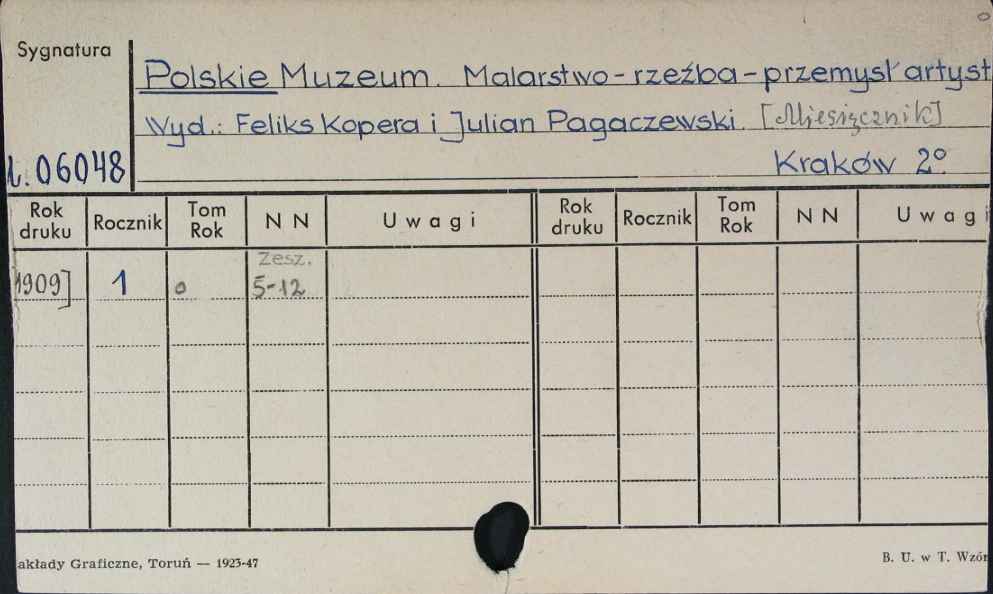 Sygnatura
Polskie Muzeum. Malarstwo-rzeźba-przemysł artyst
Wyd.: Feliks Kopera i Julian Pagaczewski. [Miesięcznik]
06048
Kraków 2°
Rok druku Rocznik Tom Rok NN Uwagi Rok druku Rocznik Tom Rok NN Uwagi
zesz.
1909] 1 o 5-12
akłady Graficzne, Toruń — 1923-47
B. U. w T. Wzór